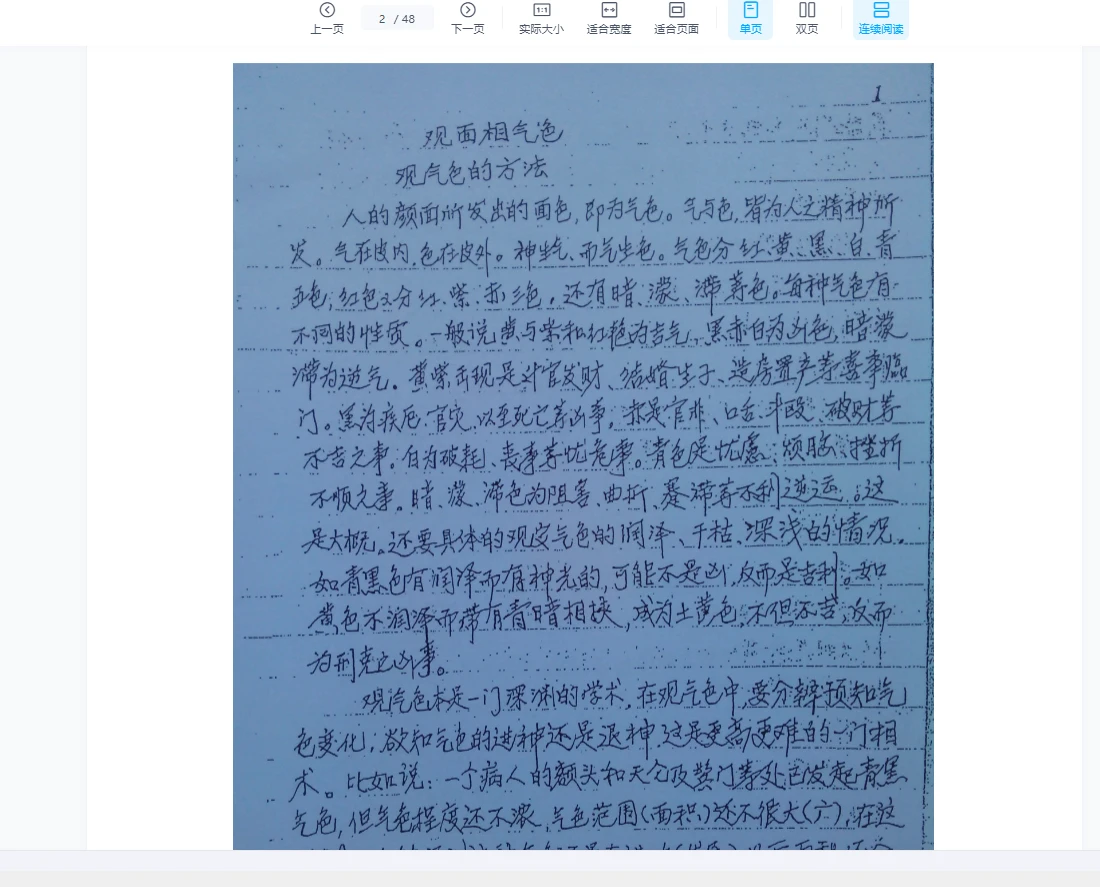 上一页
2 / 48
下一页
1:1
实际大小
适合宽度
适合页面
单页
双页
连续阅读
1
观面相气色
观气色的方法
人的颜面所发出的面色,即为气色。气与色,皆为人之精神所
发。气在皮内,色在皮外。神生气、而气生色。气色分红、黄、黑、白、青
五色;红色又分红、紫、赤三色。还有暗、濛、滞等色。每种气色有
不同的性质。一般说黄与紫和红艳为吉气,黑赤白为凶色,暗濛
滞为逆气。黄紫出现是升官发财、结婚生子、造房置产等喜事临
门。黑为疾厄、官灾、以至死亡等凶事。赤是官非、口舌、斗殴、破财等
不吉之事。白为破耗、丧事等忧危事。青色是忧虑、烦脑、挫折
不顺之事。暗、濛、滞色为阻害、曲折、蹇滞等不利逆运。这
是大概。还要具体的观定气色的润泽、干枯、深浅的情况。
如青黑色有润泽而有神光的,可能不是凶,反而是吉利。如
黄色不润泽而带有青暗相,成为土黄色,不但不吉,反而
为刑克之凶事。
观气色本是一门深渊的学术,在观气色中,要分辨预知气
色变化,欲知气色的进神还是退神,这是更高更难的一门相
术。比如说:一个病人的额头和天仓及等处已发起青黑
气色,但气色程度还不浓,气色范围(面积)还不很大(广),在这